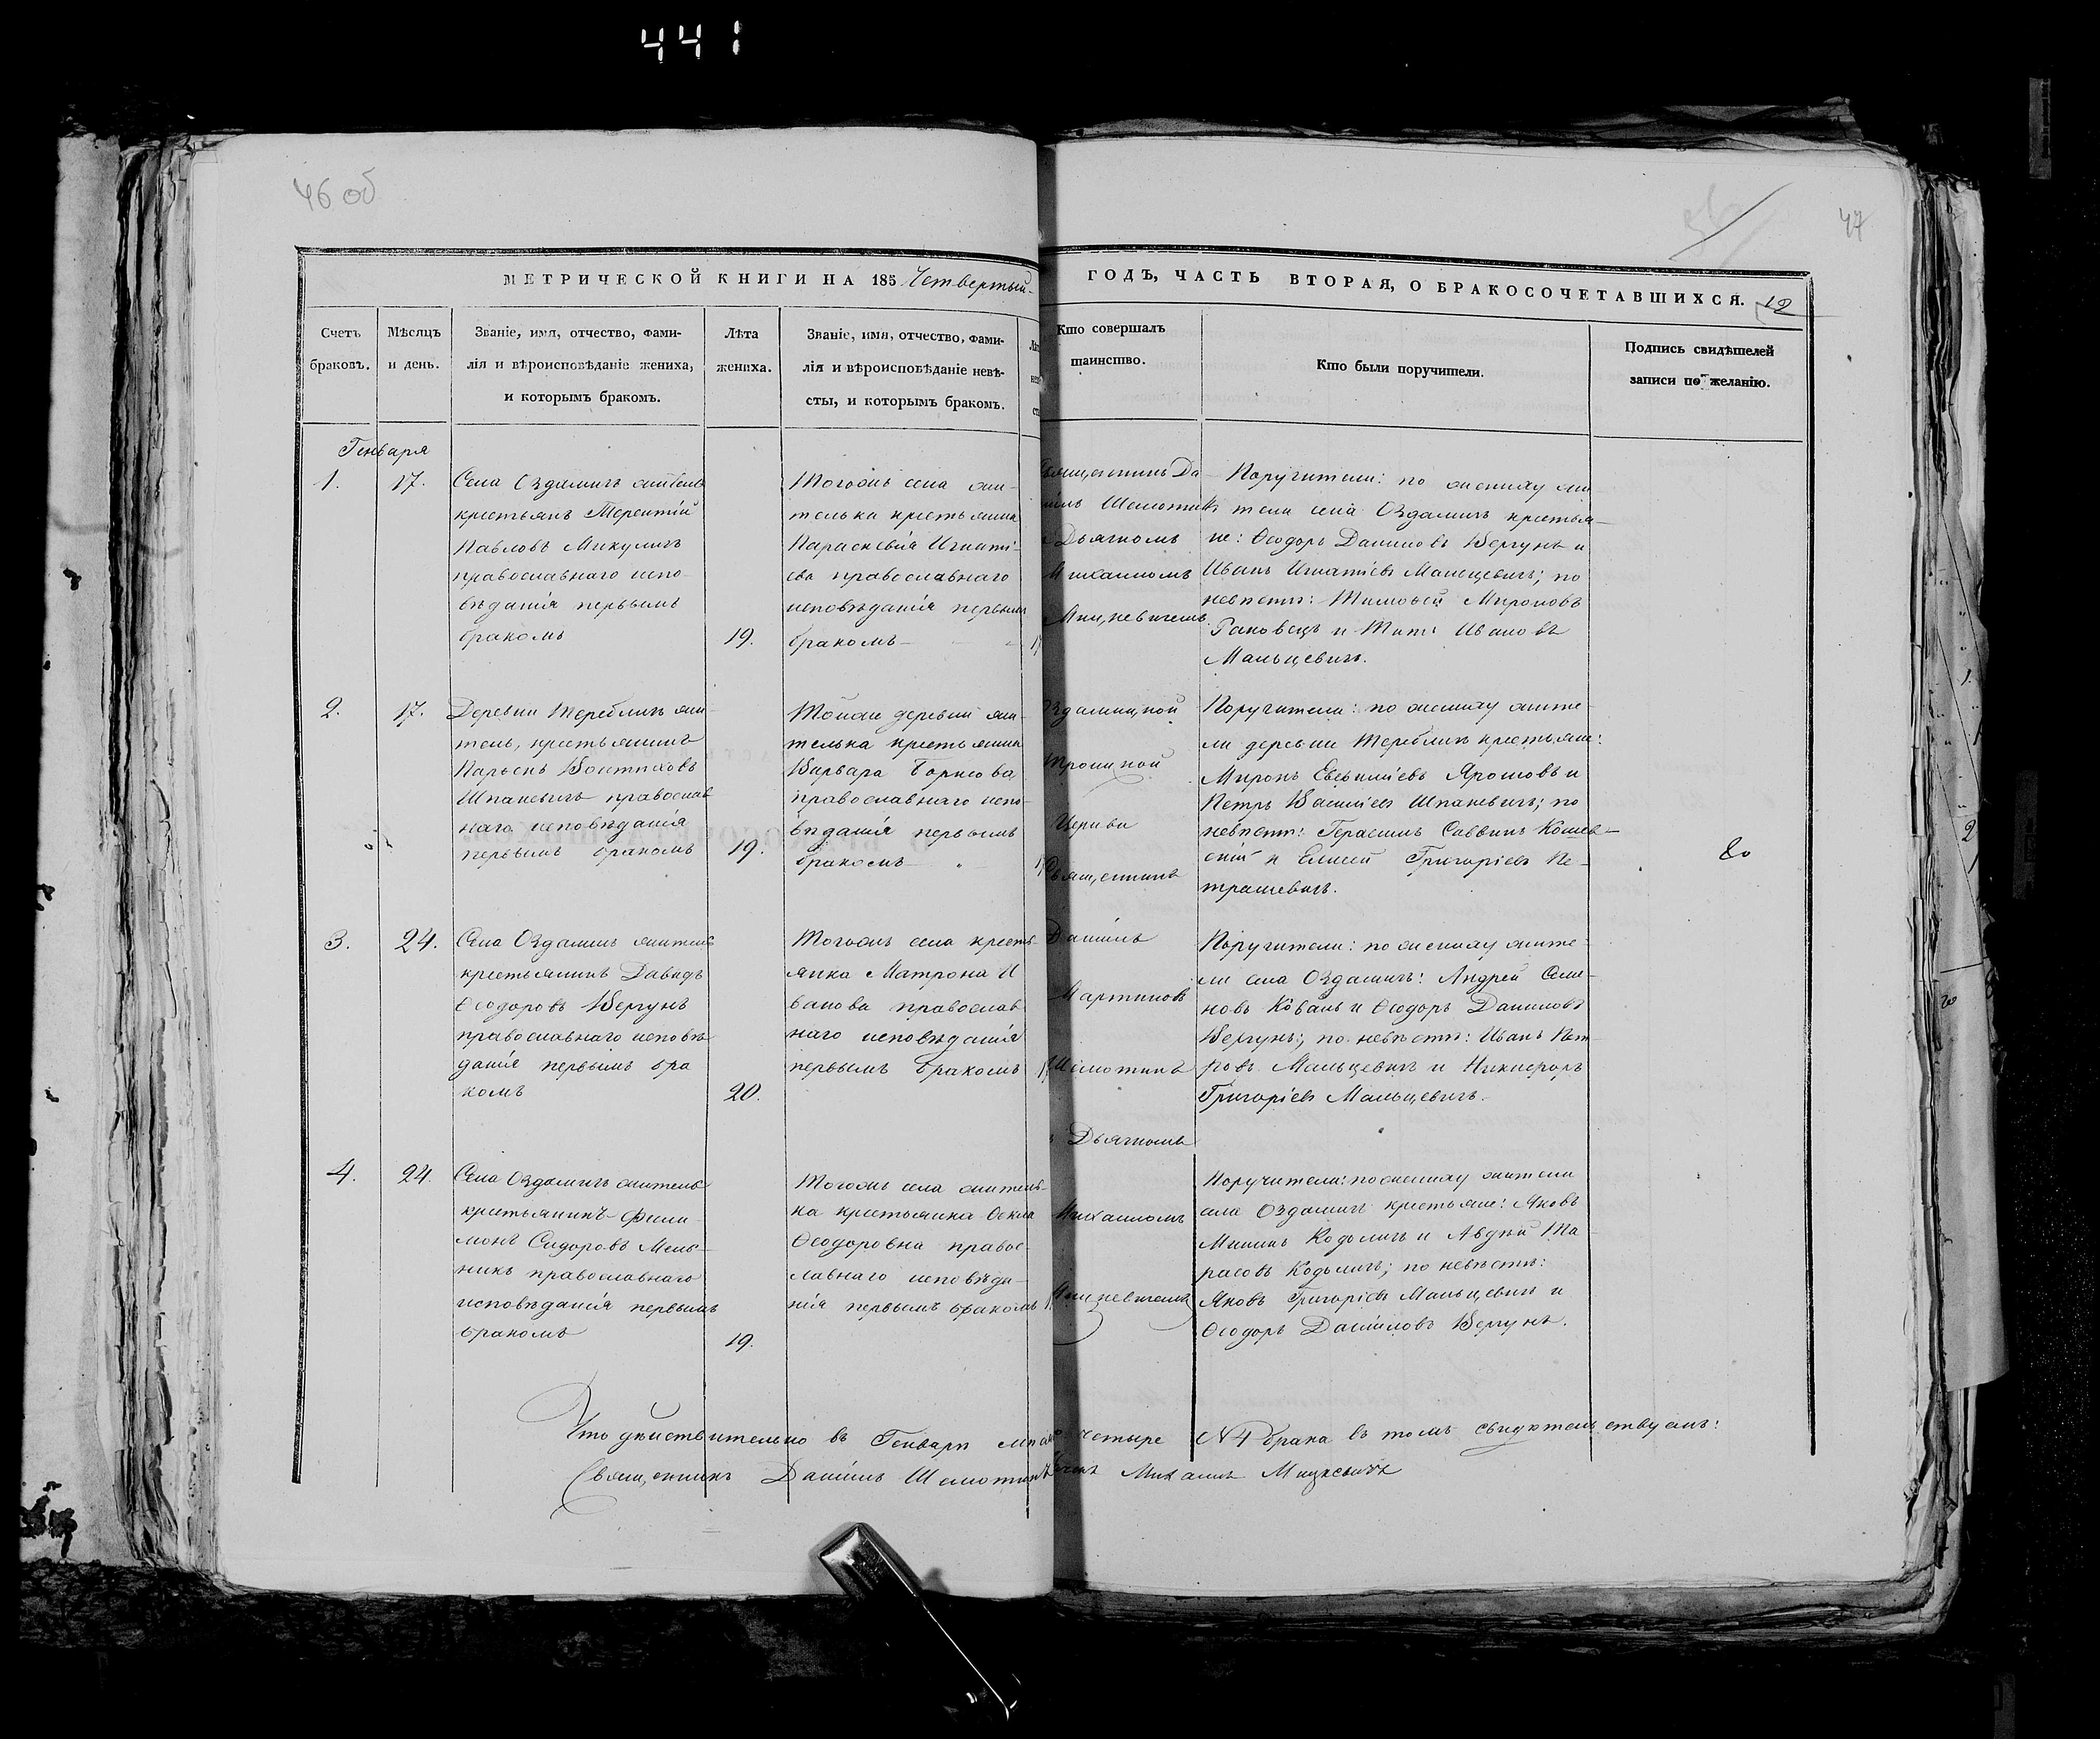 441
46 об
47
МЕТРИЧЕСКОЙ КНИГИ НА 185 Четвертый
ГОДЪ, ЧАСТЬ ВТОРАЯ, О БРАКОСОЧЕТАВШИХСЯ. 12
Счетъ
браковъ.
Мѣсяцъ
и день.
Званіе, имя, отчество, фами-
лія и вѣроисповѣданіе жениха,
и которымъ бракомъ.
Лѣта
жениха.
Званіе, имя, отчество, фами-
лія и вѣроисповѣданіе невѣ-
сты, и которымъ бракомъ.
Кто совершалъ
таинство.
Кто были поручители.
Подпись свидѣтелей
записи по желанію.
Генваря
1.
17.
Села Оздамичъ житель
крестьянъ Терентій
Павловъ Микуличъ
православнаго испо-
вѣданія первымъ
бракомъ
19.
Тогожъ села жи-
телька крестьянка
Параскевія Игнаті-
ева православнаго
исповѣданія первымъ
бракомъ
Поручители: по жениху жи
тели села Оздамичъ крестья-
не: Ѳеодоръ Даниловъ Вергунъ и
Иванъ Игнатіевъ Мальцевичъ; по
невѣстѣ: Тимоѳей Мироновъ
Раковецъ и Титъ Ивановъ
Мальцевичъ.
2.
17.
Деревни Теребличъ жи-
тель, крестьянинъ
Парѳенъ
Шпаневичъ православ
наго исповѣданія
первымъ бракомъ
19.
Тойже деревни жи-
телька крестьянка
Варвара Борисова
православнаго испо-
вѣданія первымъ
бракомъ
Поручители: по жениху жите-
ли деревни Теребличъ крестьяне:
Миронъ Ярошовъ и
Петръ Василіевъ Шпаневичъ; по
невѣстѣ: Герасимъ Саввинъ Кошев-
скій и Елисей Григоріевъ Пе-
трашевичъ.
3.
24.
Села Оздамичъ житель
крестьянинъ Давидъ
Ѳеодоровъ Вергунъ
православнаго исповѣ
данія первымъ бра
комъ
20.
Тогожъ села кресть-
янка Матрона И
ванова православ
наго исповѣданія
первымъ бракомъ
Поручители: по жениху жите-
ли села Оздамичъ: Андрей Семе-
новъ Ковань и Ѳеодоръ Даниловъ
Вергунъ; по невѣстѣ: Иванъ Пет-
ровъ Мальцевичъ и Никифоръ
Григоріевъ Мальцевичъ.
4.
24.
Села Оздамичъ житель
крестьянинъ Фили-
монъ Сидоровъ Мель-
никъ православнаго
исповѣданія первымъ
бракомъ
19.
Тогожъ села житель-
ка крестьянка Ѳекла
Ѳеодоровна правос-
лавнаго исповѣда-
нія первымъ бракомъ
Поручители: по жениху жители
села Оздамичъ крестьяне: Яковъ
Мининъ Кодоличъ и Авдѣй Та-
расовъ Кодоличъ; по невѣстѣ:
Яковъ Григоріевъ Мальцевичъ и
Ѳеодоръ Даниловъ Вергунъ.
Священникъ Да
ніилъ Шеметилло
и Дьячкомъ
Михаиломъ
Мицкевичемъ.
Оздамицкой
Троицкой
Церкви
Священникъ
Даніилъ
Мартиновъ
и Дьячкомъ
Михаиломъ
Мицкевичемъ
Что дѣйствительно въ Генварѣ четыре №4 брака въ томъ свидѣтельствуемъ:
Священникъ Даніилъ Михаилъ Мицкевичъ